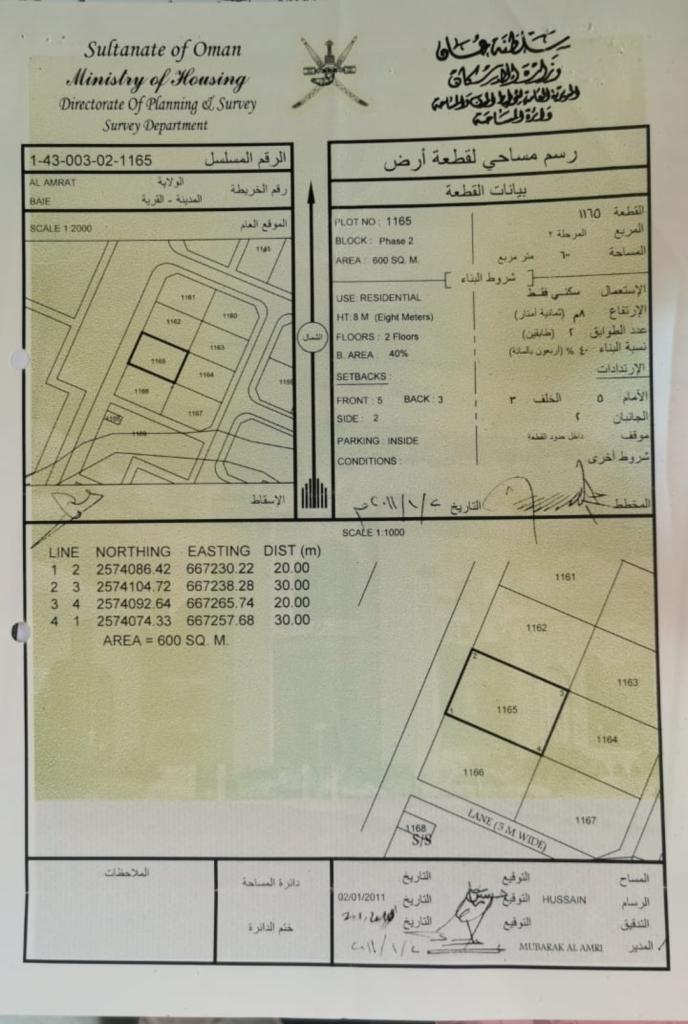 Sultanate of Oman
Ministry of Housing
Directorate Of Planning & Survey
Survey Department
سلطنة عمان
وزارة الإسكان
دائرة المساحة
1-43-003-02-1165 الرقم المسلسل
AL AMRAT الولاية
BAIE المدينة - القرية
رقم الخريطة
SCALE 1:2000 الموقع العام
1161
1160
1162
1163
1165
1164
1166
1167
الإسقاط
الشمال
رسم مساحي لقطعة أرض
بيانات القطعة
PLOT NO : 1165 القطعة ١١٦٥
BLOCK : Phase 2 المربع المرحلة ٢
AREA : 600 SQ. M. المساحة ٦٠٠ متر مربع
شروط البناء
USE: RESIDENTIAL الإستعمال سكني فقط
HT: 8 M (Eight Meters) الإرتفاع ٨م (ثمانية أمتار)
FLOORS : 2 Floors عدد الطوابق ٢ (طابقين)
B. AREA : 40% نسبة البناء ٤٠ % (أربعون بالمائة)
SETBACKS : الإرتدادات
FRONT : 5 BACK : 3 الأمام ٥ الخلف ٣
SIDE : 2 الجانبان ٢
PARKING : INSIDE موقف داخل حدود القطعة
CONDITIONS : شروط أخرى
المخطط التاريخ
SCALE 1:1000
LINE NORTHING EASTING DIST (m)
1 2 2574086.42 667230.22 20.00
2 3 2574104.72 667238.28 30.00
3 4 2574092.64 667265.74 20.00
4 1 2574074.33 667257.68 30.00
AREA = 600 SQ. M.
1161
1162
1163
2
3
1165
1
1164
4
1166
1167
LANE (5 M WIDE)
1168
S/S
الملاحظات
دائرة المساحة
ختم الدائرة
المساح التوقيع التاريخ
الرسام HUSSAIN التوقيع التاريخ 02/01/2011
التدقيق التوقيع التاريخ
المدير MUBARAK AL AMRI